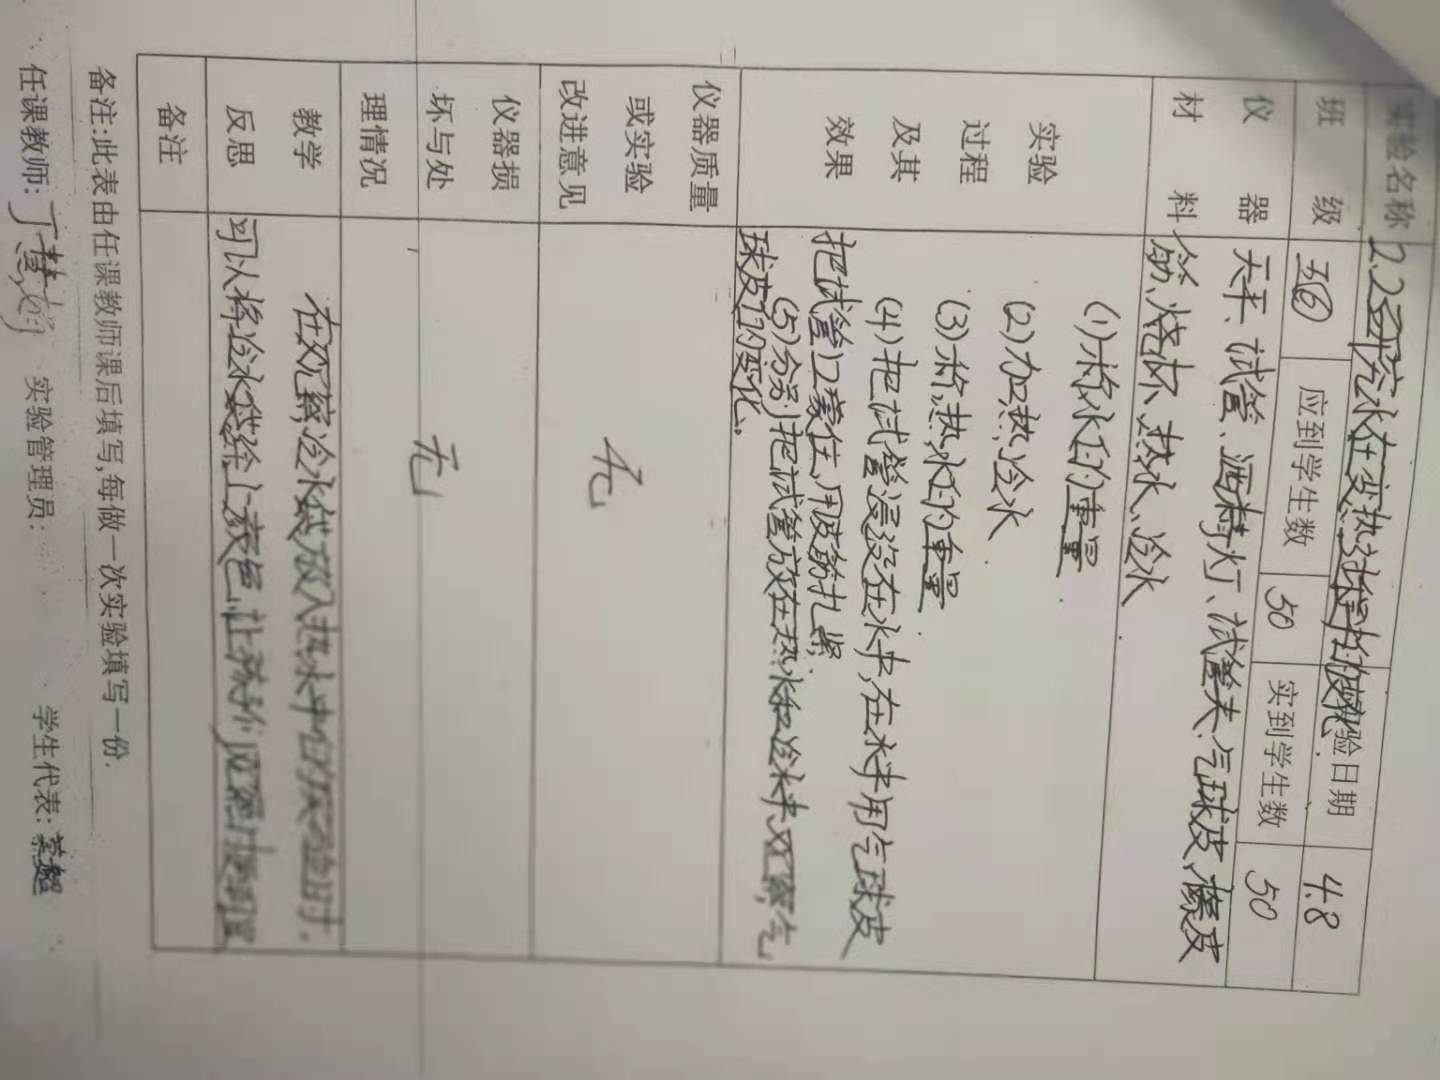 实验名称 2.2研究水在变热过程中的变化
实验日期 4.8
班级 五⑥ 应到学生数 50 实到学生数 50
仪器材料 天平、试管、酒精灯、试管夹、气球皮、橡皮
筋、烧杯、热水、冷水
实验过程及其效果
(1)称水的重量
(2)加热冷水
(3)称热水的重量
(4)把试管浸没在水中,在水中用气球皮
把试管口蒙住,用皮筋扎紧;
(5)分别把试管放在热水和冷水中,观察气
球皮的变化。
仪器质量或实验改进意见 无
仪器损坏与处理情况 无
教学反思 在观察冷水袋放入热水中的实验时,
可以将冷水袋染上颜色,让孩子们观察
备注
备注:此表由任课教师课后填写,每做一次实验填写一份.
任课教师:丁慧 实验管理员: 学生代表: